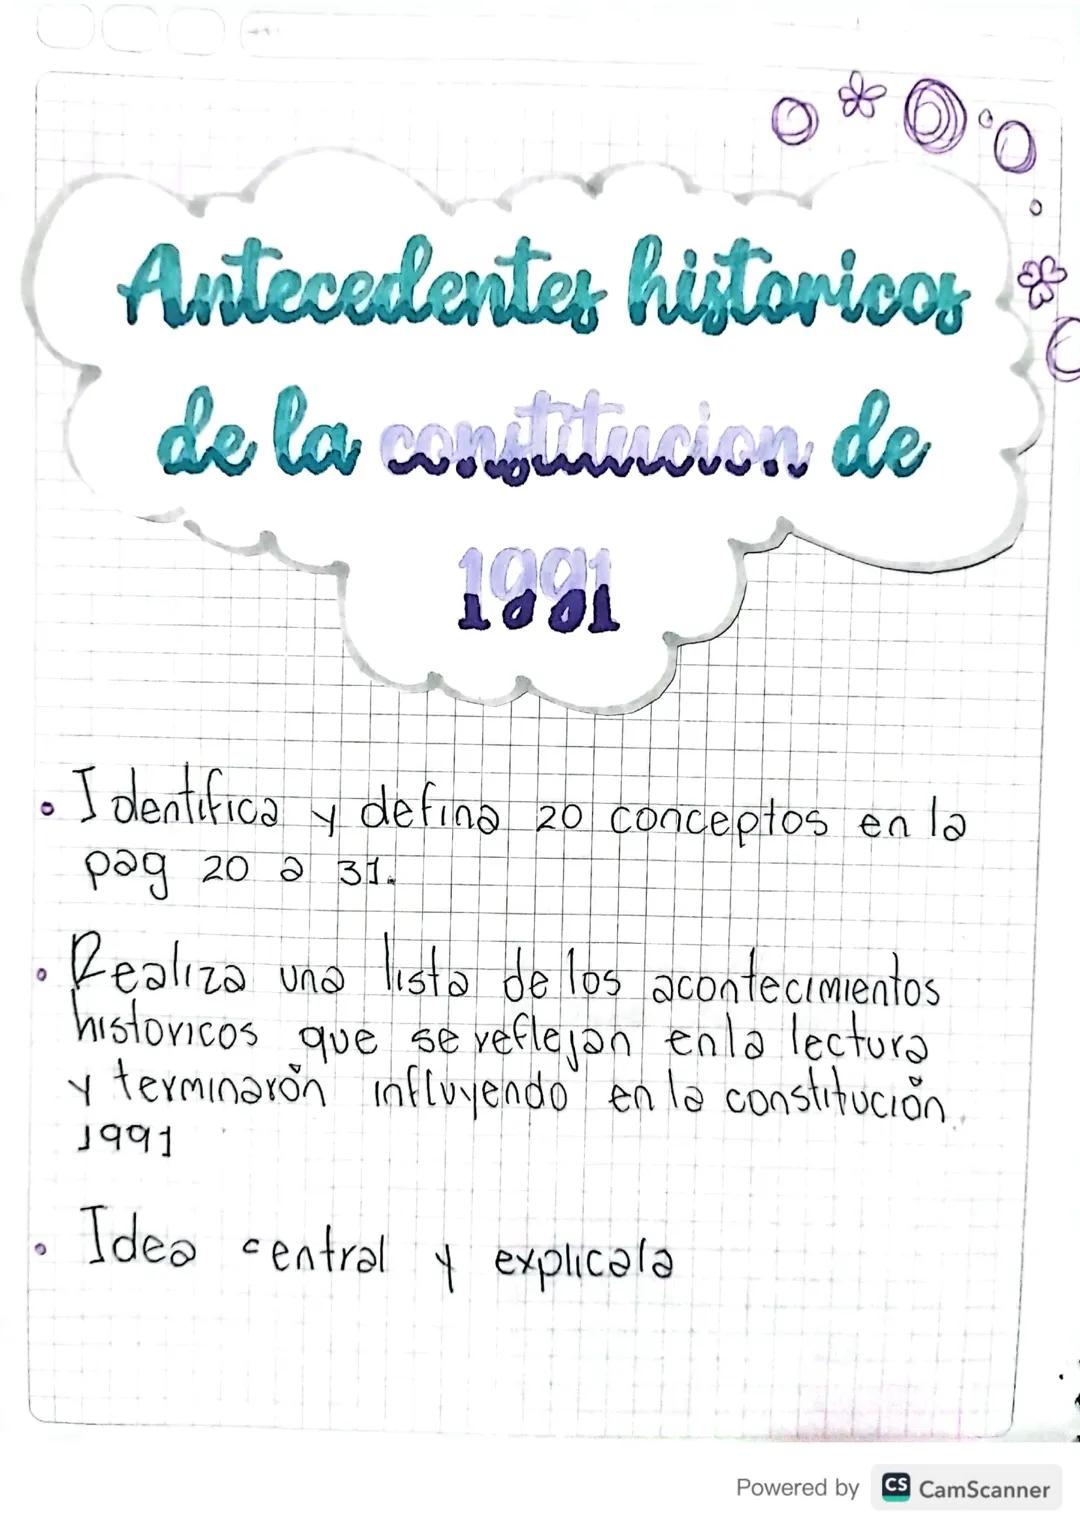 Antecedentes historicos
de la constitucion de
1991
• Identifica y defina 20 conceptos en la
pag 20 a 31.
• Realiza una lista de los acontecimientos
historicos que se reflejan en la lectura
y terminarón influyendo en la constitución.
1991
• Idea central y explicala
Powered by CS CamScanner